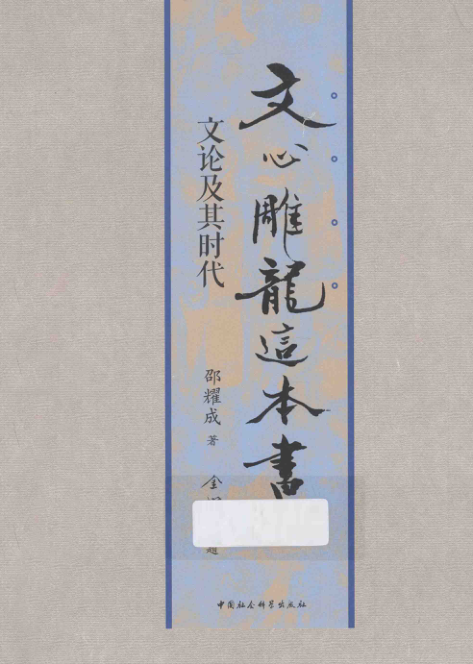 文心雕龍這本書
文论及其时代
邵耀成 著
金
題
中国社会科学出版社